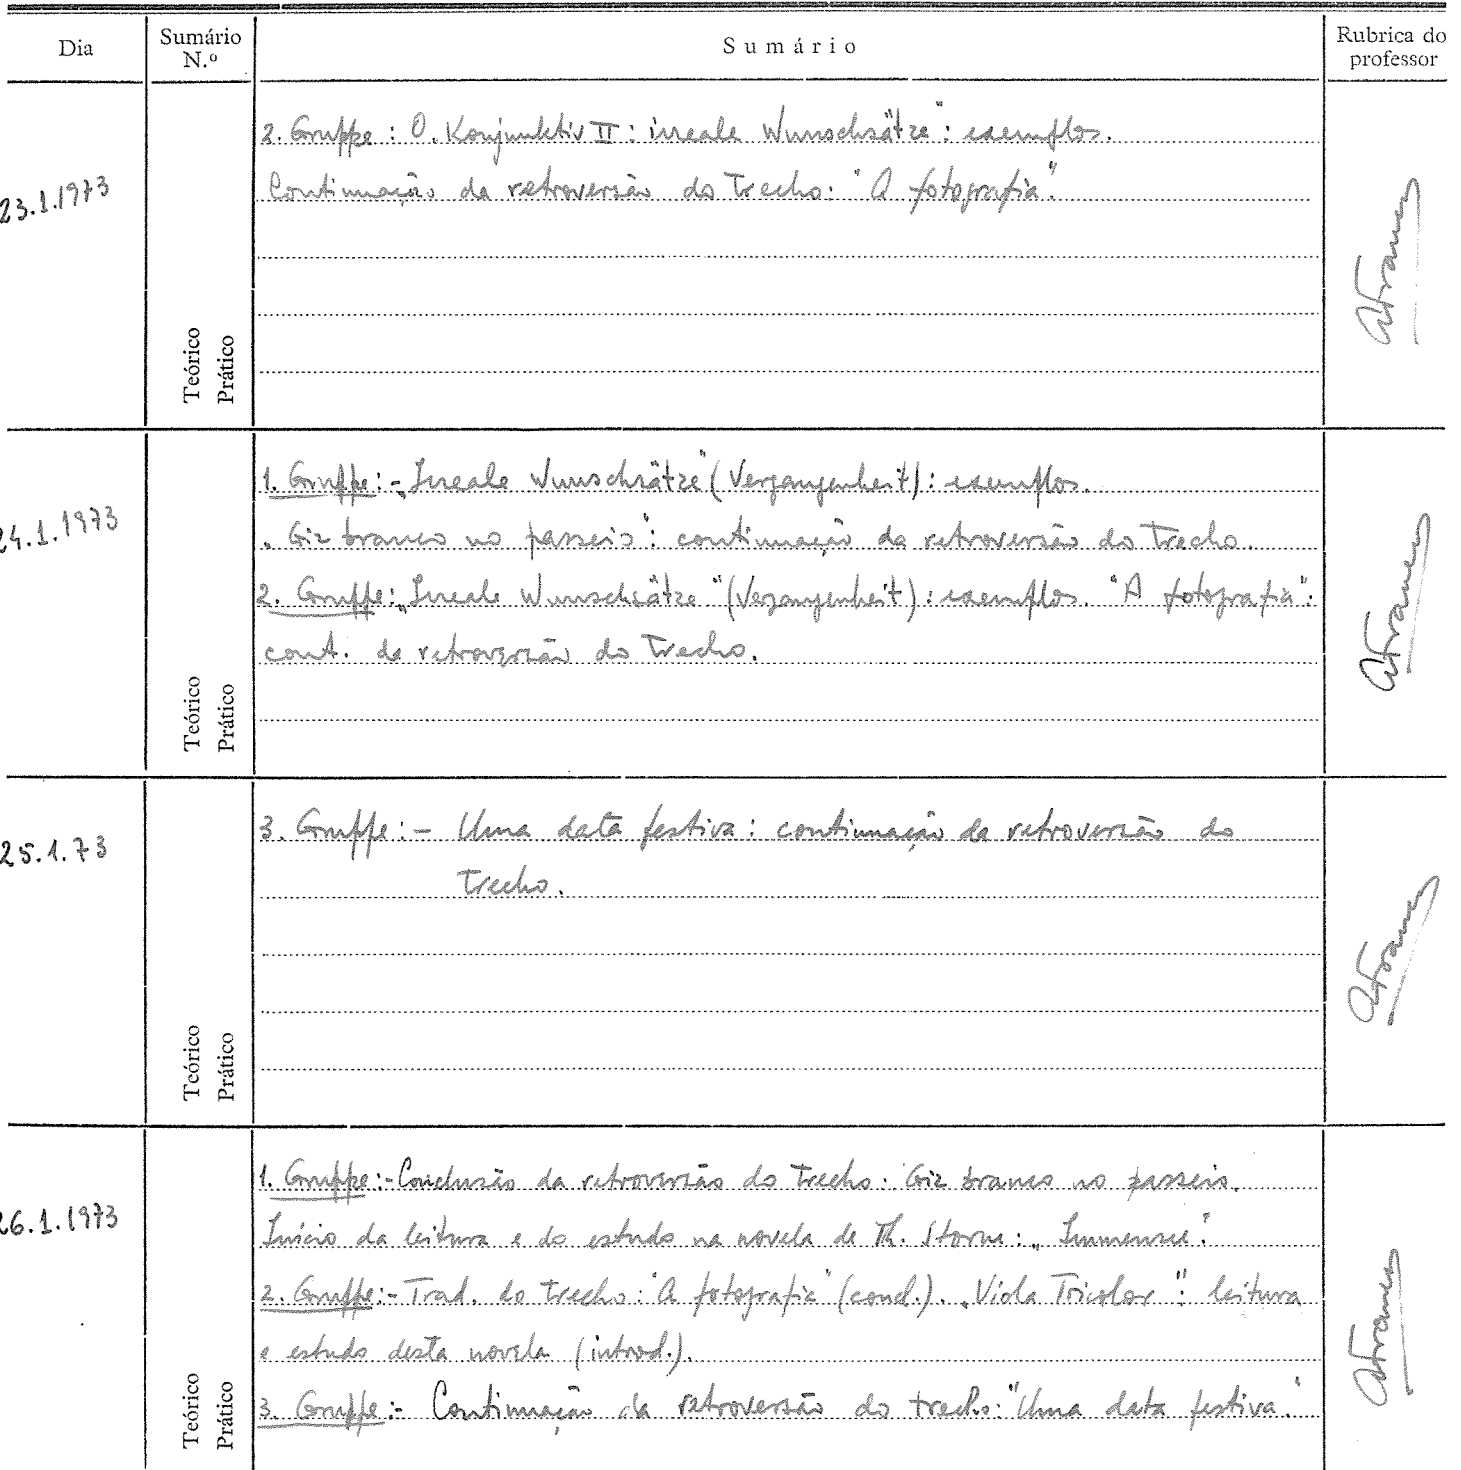 Dia Sumário N.º Sumário Rubrica do professor
23.1.1973
2. Gruppe: O. Konjunktiv II: irreale Wunschsätze": exemplos.
Continuação da retroversão do trecho: "A fotografia".
Teórico
Prático
24.1.1973
1. Gruppe:- „Irreale Wunschsätze" (Vergangenheit): exemplos.
„Giz branco no passeio": continuação da retroversão do trecho.
2. Gruppe: „Irreale Wunschsätze" (Vergangenheit): exemplos. "A fotografia":
cont. da retroversão do trecho.
Teórico
Prático
25.1.73
3. Gruppe:- Uma data festiva: continuação da retroversão do
trecho.
Teórico
Prático
26.1.1973
1. Gruppe:- Conclusão da retroversão do trecho: Giz branco no passeio.
Início da leitura e do estudo na novela de Th. Storm: „Immensee".
2. Gruppe:- Trad. do trecho: "A fotografia" (concl.). „Viola Tricolor": leitura
e estudo desta novela (introd.).
3. Gruppe:- Continuação da retroversão do trecho: "Uma data festiva."
Teórico
Prático